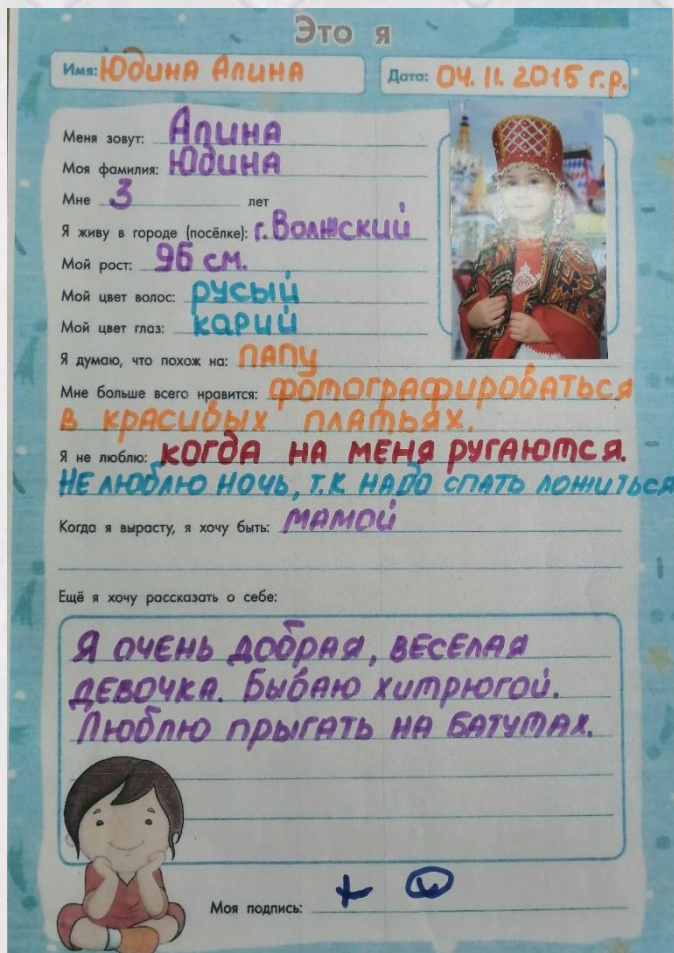 Это я
Имя: Юдина Алина Дата: 04.11.2015 г.р.
Меня зовут: Алина
Моя фамилия: Юдина
Мне 3 лет
Я живу в городе (посёлке): г. Волжский
Мой рост: 96 см.
Мой цвет волос: русый
Мой цвет глаз: карий
Я думаю, что похож на: папу
Мне больше всего нравится: фотографироваться
в красивых платьях.
Я не люблю: когда на меня ругаются.
Не люблю ночь, т.к надо спать ложиться
Когда я вырасту, я хочу быть: мамой
Ещё я хочу рассказать о себе:
Я очень добрая, веселая
девочка. Бываю хитрюгой.
Люблю прыгать на батутах.
Моя подпись: